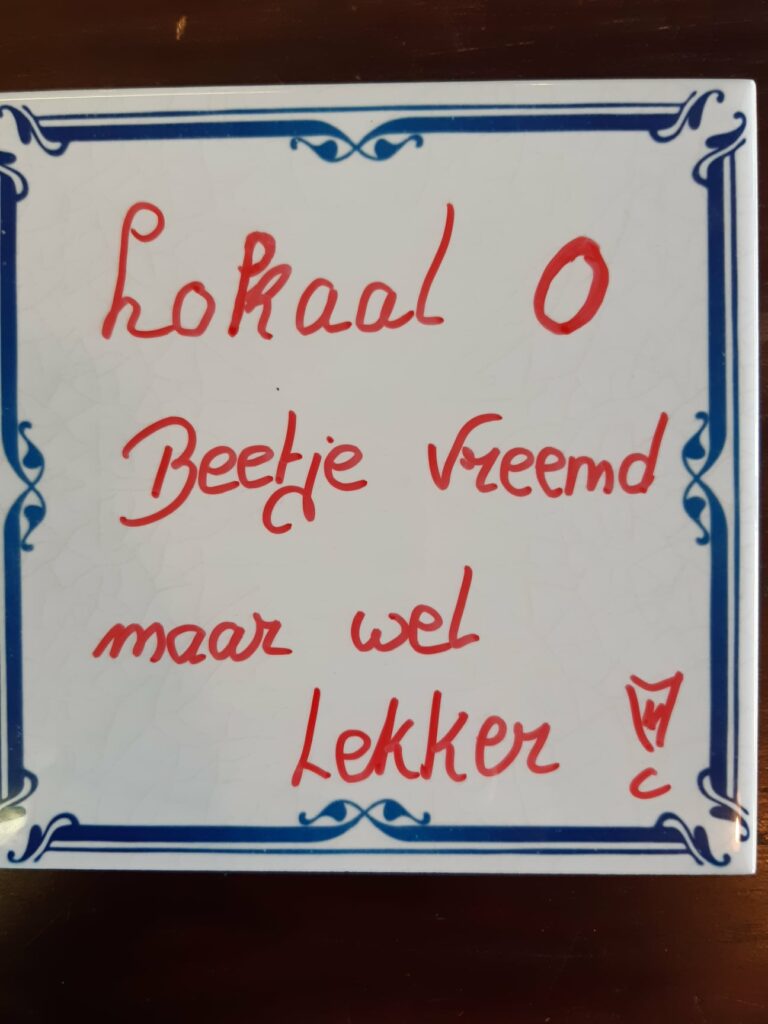 Lokaal O
Beetje vreemd
maar wel
Lekker !